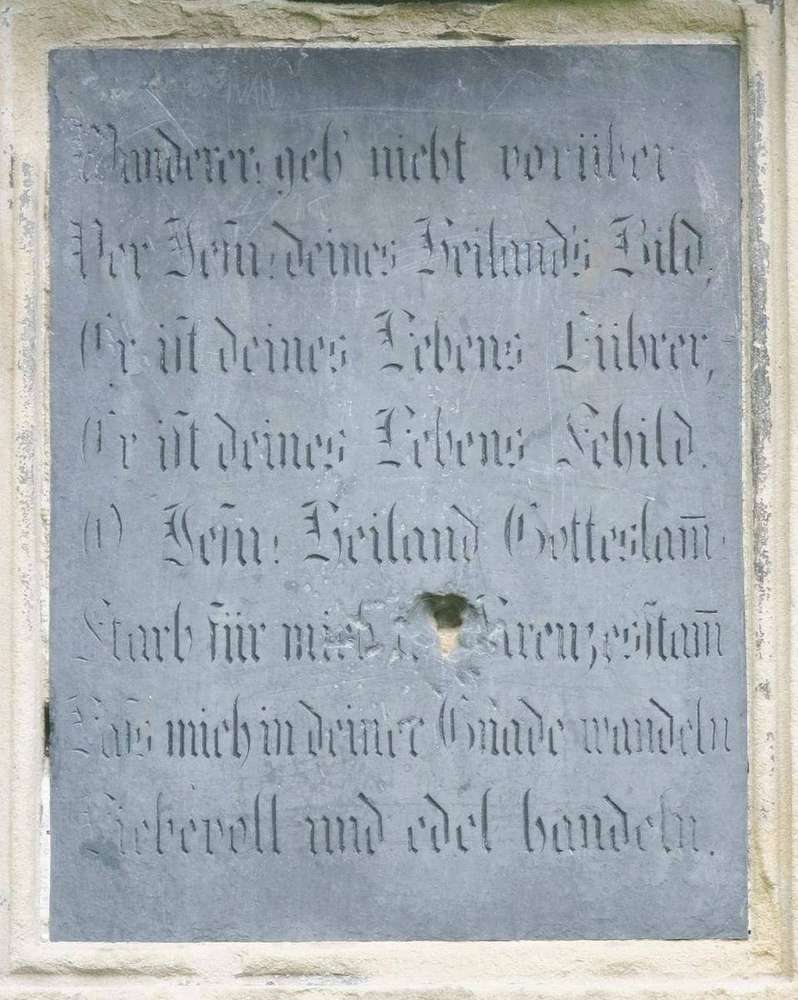 Wanderer! geh' nicht vorüber
Vor Jesu! deines Heiland's Bild,
Er ist deines Lebens Führer,
Er ist deines Lebens Schild.
O Jesu! Heiland Gotteslam̄
Starb für mich Kreuzesstam̄
Laß mich in deiner Gnade wandeln
Liebevoll und edel handeln.